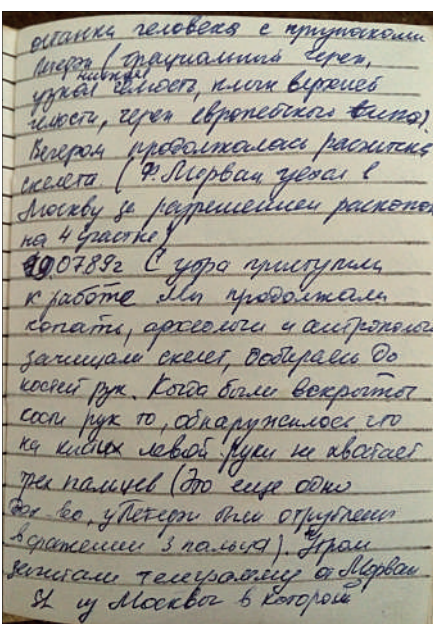 останки человека с признаками
Петефи (грациальный череп,
узкая нижняя челюсть, клык верхней
челюсти, череп европейского типа).
Вечером продолжалась расчистка
скелета. (Ф. Морваи уехал в
Москву за разрешением раскопок
на 4 участке)
190789г С утра приступили
к работе Мы продолжали
копать, археологи и антропологи
зачищали скелет, добираясь до
костей рук. Когда были вскрыты
кости рук то, обнаружилось что
на кистях левой руки не хватает
трех пальцев (Это еще одно
у Петефи были отрублены
в сражении 3 пальца). Утром
зачитали телеграмму от Морваи
из Москвы в которой